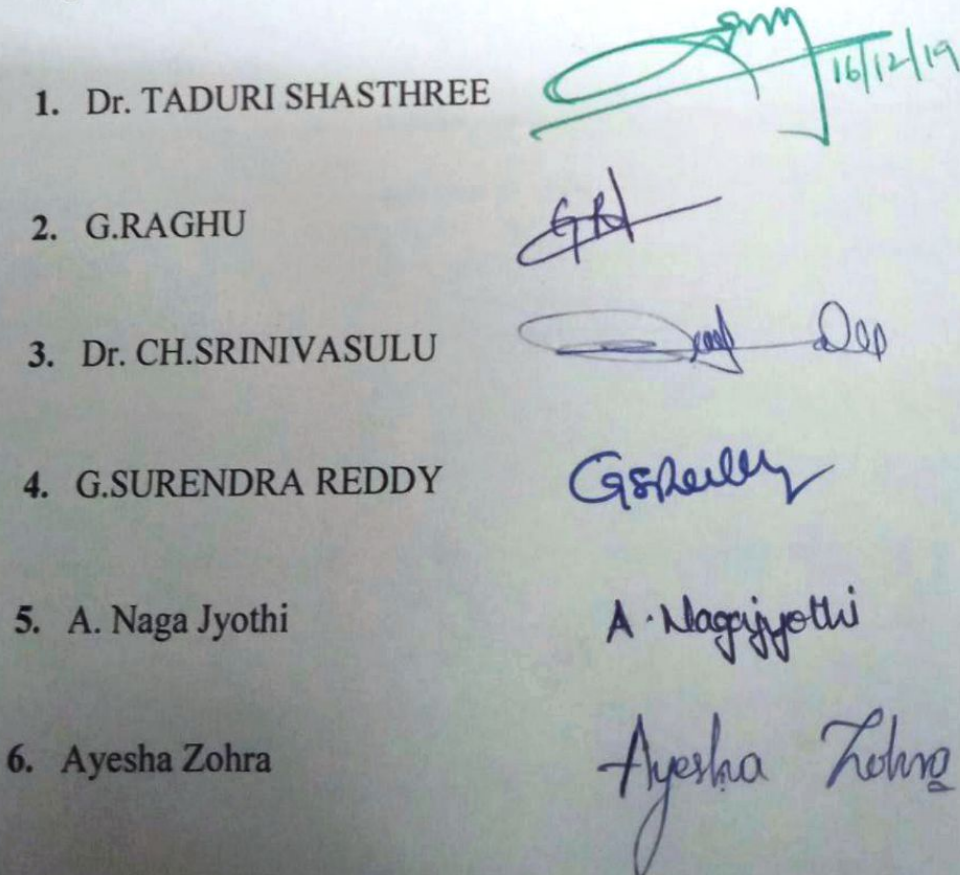 1. Dr. TADURI SHASTHREE 16/12/19
2. G.RAGHU
3. Dr. CH.SRINIVASULU
4. G.SURENDRA REDDY GSReddy
5. A. Naga Jyothi A. Nagajyothi
6. Ayesha Zohra Ayesha Zohra